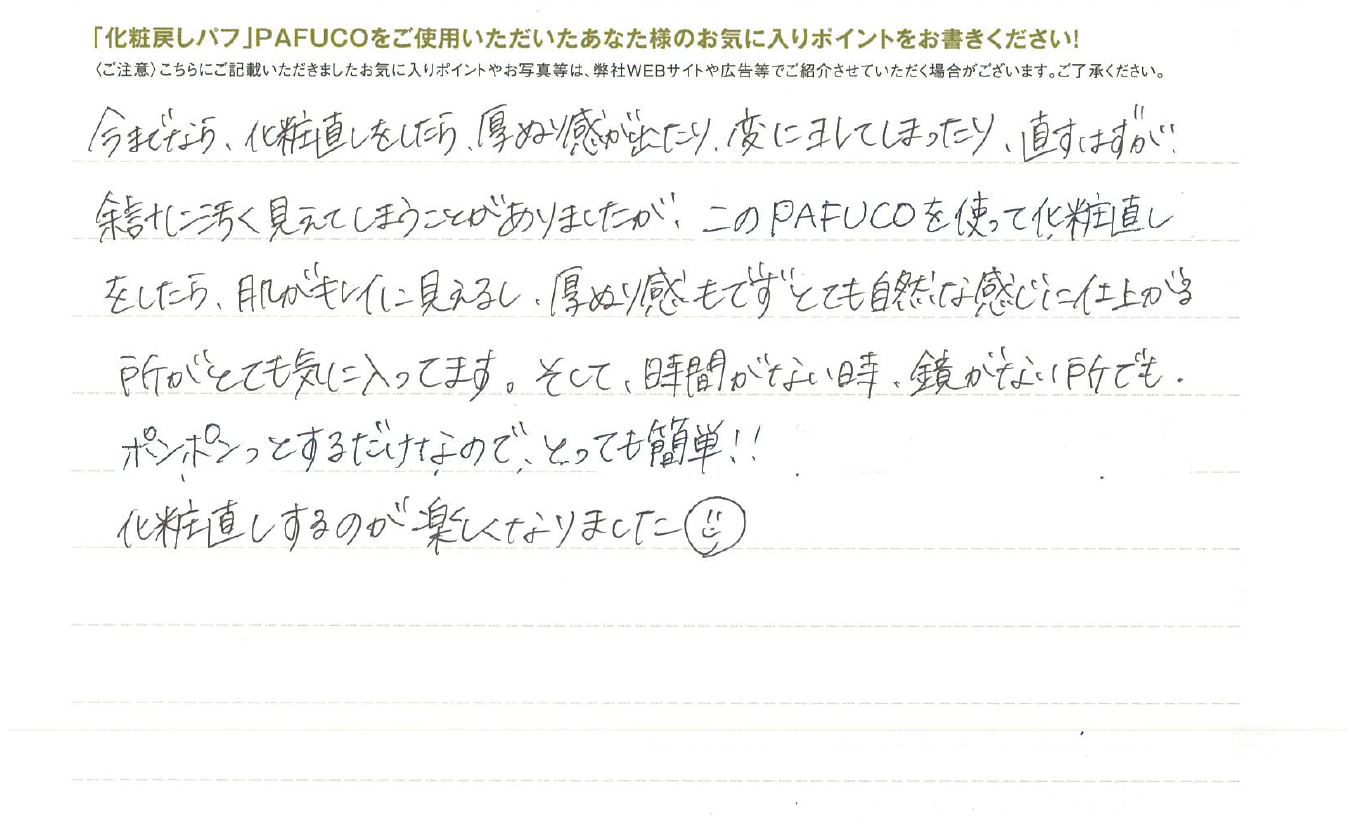 「化粧戻しパフ」PAFUCOをご使用いただいたあなた様のお気に入りポイントをお書きください!
〈ご注意〉こちらにご記載いただきましたお気に入りポイントやお写真等は、弊社WEBサイトや広告等でご紹介させていただく場合がございます。ご了承ください。
今までなら、化粧直しをしたら、厚ぬり感が出たり、変にヨレてしまったり、直すはずが
余計に汚く見えてしまうことがありましたが、このPAFUCOを使って化粧直し
をしたら、肌がキレイに見えるし、厚ぬり感もでずとても自然な感じに仕上がる
所がとても気に入ってます。そして、時間がない時、鏡がない所でも、
ポンポンっとするだけなので、とっても簡単!!
化粧直しするのが楽しくなりました